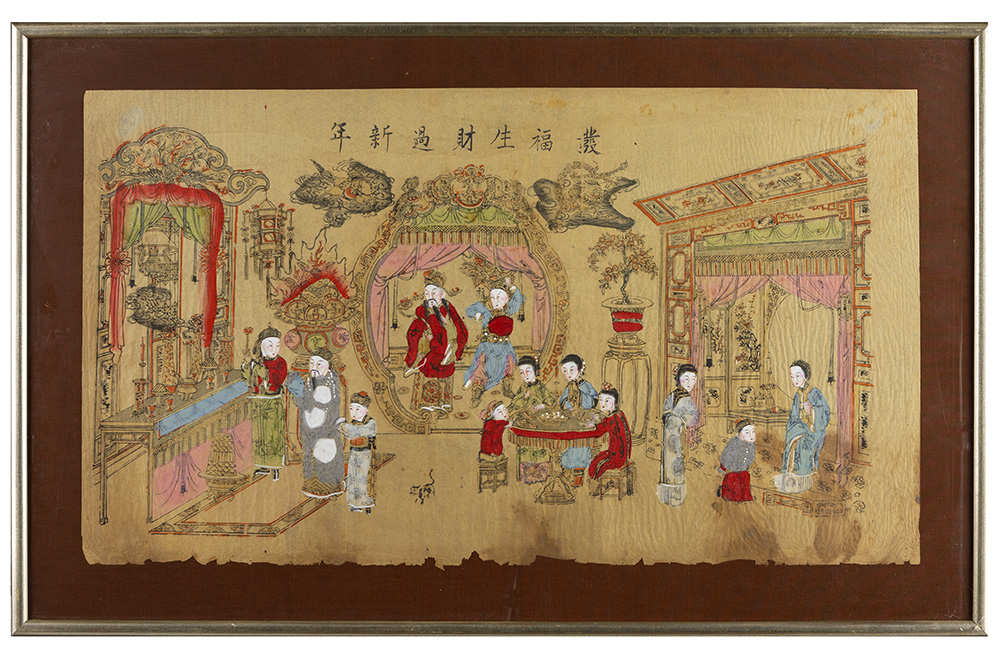 發福生財過新年